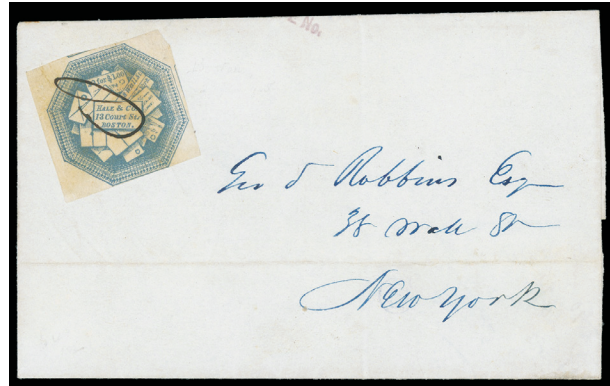 No.
HALE & Co.
13 COURT St.
BOSTON.
Geo S Robbins Esq
38 Wall St
New York